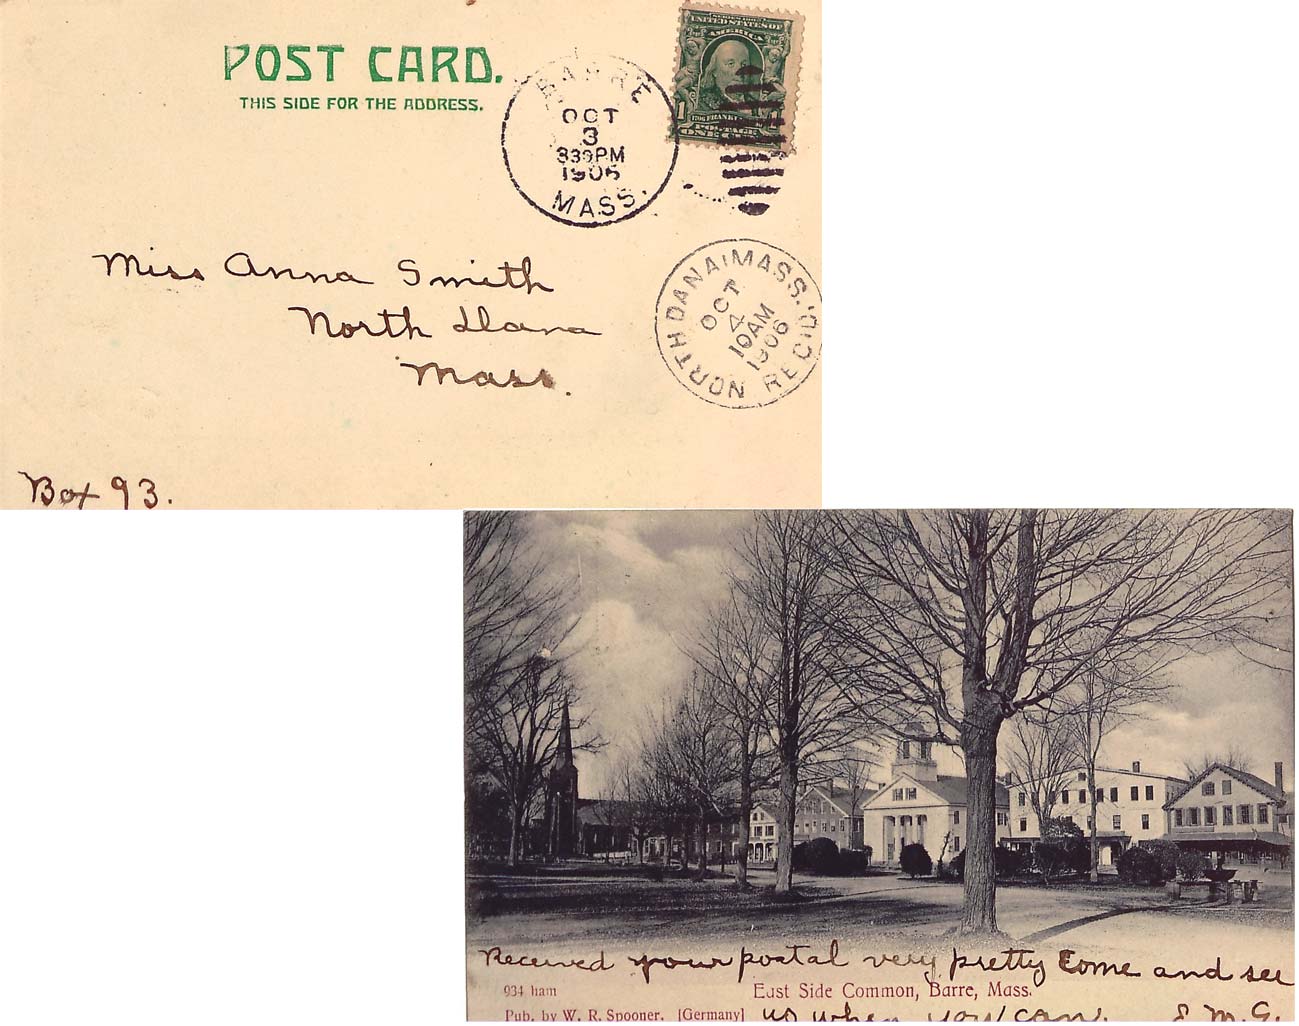 POST CARD.
THIS SIDE FOR THE ADDRESS.
SERIES 1902
UNITED STATES OF
AMERICA
1706 FRANKLIN
POSTAGE
1 ONE
BARRE
OCT
3
330PM
1906
MASS.
NORTH DANA, MASS. REC'D.
OCT
4
10AM
1906
Miss Anna Smith
North Dana
Mass.
Box 93.
Received your postal very pretty Come and see
us when you can. E. M. G.
934 ham
East Side Common, Barre, Mass.
Pub. by W. R. Spooner. [Germany]